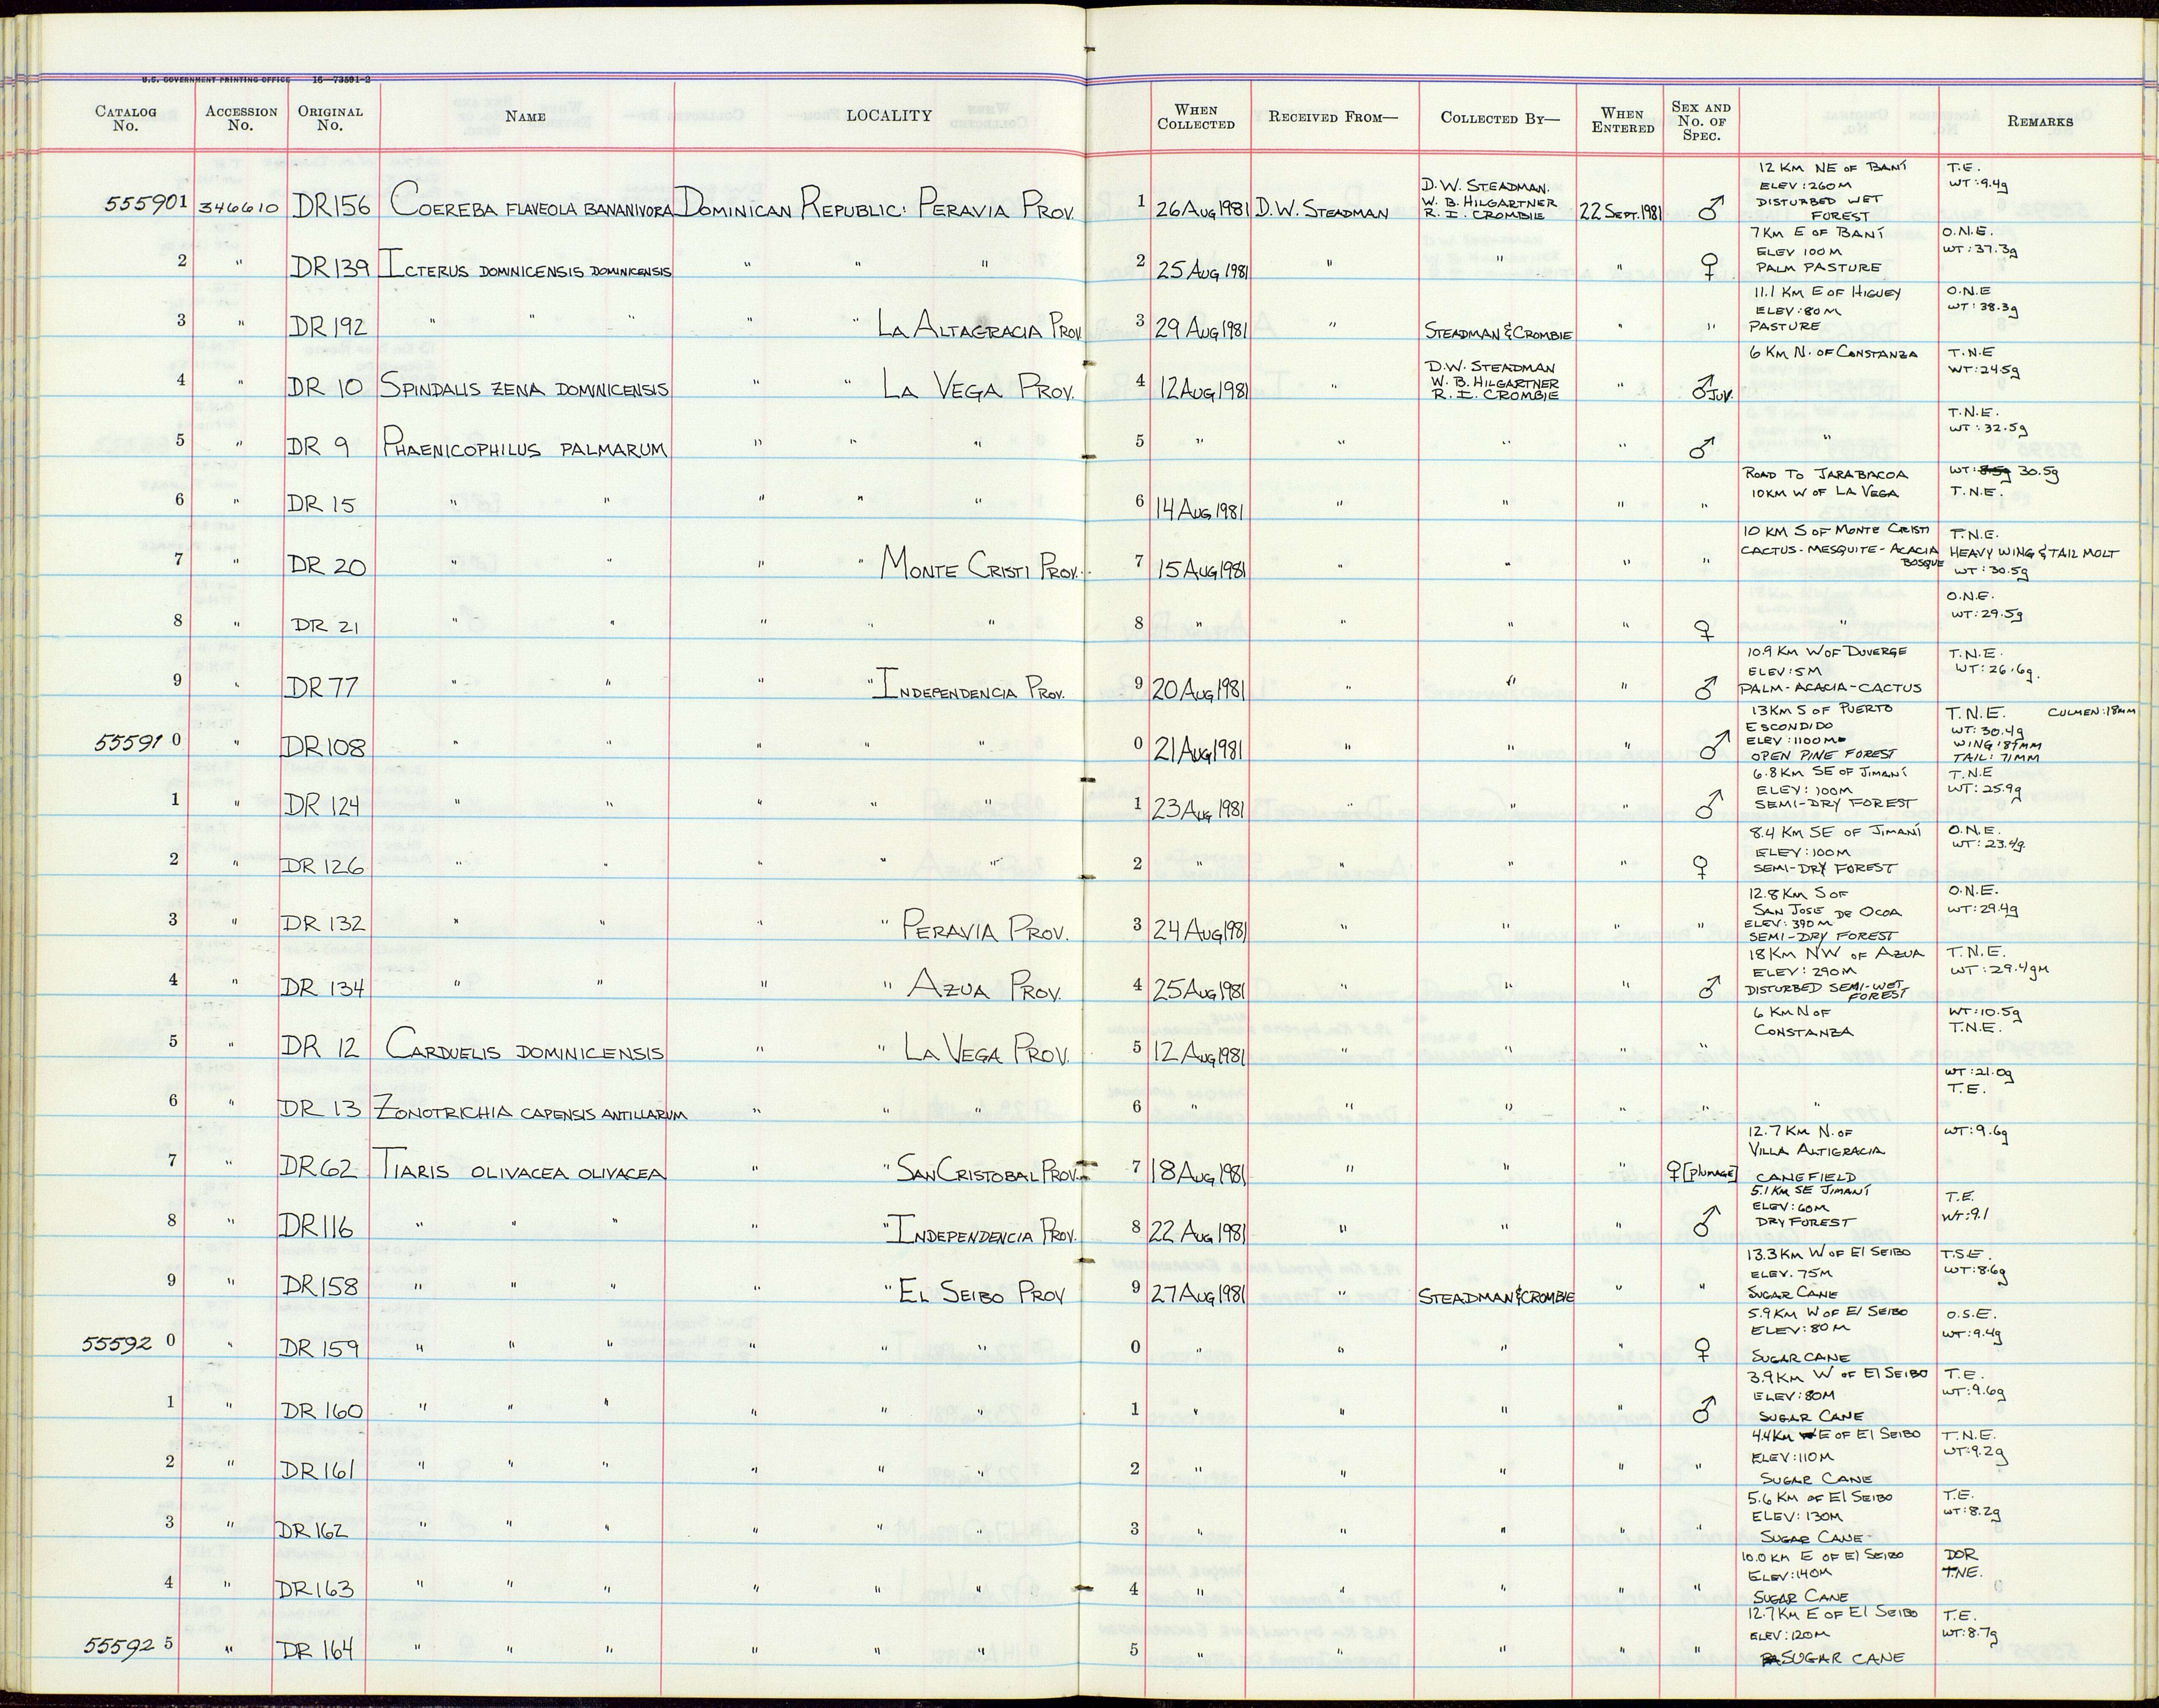 U.S. GOVERNMENT PRINTING OFFICE 16—73591-2
CATALOG No. ACCESSION No. ORIGINAL No. NAME LOCALITY WHEN COLLECTED RECEIVED FROM— COLLECTED BY— WHEN ENTERED SEX AND No. OF SPEC. REMARKS
555901 346610 DR156 COEREBA FLAVEOLA BANANIVORA DOMINICAN REPUBLIC: PERAVIA PROV. 1 26 AUG 1981 D.W. STEADMAN D.W. STEADMAN. W. B. HILGARTNER R. I. CROMBIE 22 SEPT. 1981 ♂ 12 KM NE OF BANÍ ELEV: 260M DISTURBED WET FOREST T.E. WT: 9.4g
2 " DR139 ICTERUS DOMINICENSIS DOMINICENSIS " " " 2 25 AUG 1981 " " " ♀ 7KM E OF BANÍ ELEV 100M PALM PASTURE O.N.E. WT: 37.3g
3 " DR192 " " " " " LA ALTAGRACIA PROV 3 29 AUG 1981 " STEADMAN & CROMBIE " " 11.1 KM E OF HIGUEY ELEV: 80M PASTURE O.N.E WT: 38.3g
4 " DR 10 SPINDALIS ZENA DOMINICENSIS " " LA VEGA PROV. 4 12 AUG 1981 " D.W. STEADMAN W. B. HILGARTNER R. I. CROMBIE " ♂ JUV. 6 KM N. OF CONSTANZA T.N.E WT: 24.5g
5 " DR 9 PHAENICOPHILUS PALMARUM " " " 5 " " " " ♂ " T.N.E. WT: 32.5g
6 " DR 15 " " " " " 6 14 AUG 1981 " " " " ROAD TO JARABACOA 10KM W OF LA VEGA WT: 8.5g 30.5g T.N.E.
7 " DR 20 " " " " MONTE CRISTI PROV. 7 15 AUG 1981 " " " " 10 KM S OF MONTE CRISTI CACTUS-MESQUITE-ACACIA BOSQUE T.N.E. HEAVY WING & TAIL MOLT WT: 30.5g
8 " DR 21 " " " " " 8 " " " " ♀ " O.N.E. WT: 29.5g
9 " DR 77 " " " " INDEPENDENCIA PROV. 9 20 AUG 1981 " " " ♂ 10.9 KM W OF DUVERGE ELEV: 5M PALM-ACACIA-CACTUS T.N.E. WT: 26.6g.
555910 " DR108 " " " " " 0 21 AUG 1981 " " " ♂ 13KM S OF PUERTO ESCONDIDO ELEV: 1100M OPEN PINE FOREST T.N.E. CULMEN: 18MM WT: 30.4g WING: 87MM TAIL: 71MM
1 " DR 124 " " " " " 1 23 AUG 1981 " " " ♂ 6.8 KM SE OF JIMANÍ ELEV: 100M SEMI-DRY FOREST T.N.E WT: 25.9g
2 " DR 126 " " " " " 2 " " " " ♀ 8.4 KM SE OF JIMANÍ ELEV: 100M SEMI-DRY FOREST O.N.E. WT: 23.4g.
3 " DR 132 " " " " PERAVIA PROV. 3 24 AUG 1981 " " " " 12.8 KM S OF SAN JOSE DE OCOA ELEV: 390M SEMI-DRY FOREST O.N.E. WT: 29.4g
4 " DR 134 " " " " AZUA PROV. 4 25 AUG 1981 " " " ♂ 18 KM NW OF AZUA ELEV: 290M DISTURBED SEMI-WET FOREST T.N.E. WT: 29.4gM
5 " DR 12 CARDUELIS DOMINICENSIS " " LA VEGA PROV. 5 12 AUG 1981 " " " " 6 KM N OF CONSTANZA WT: 10.5g T.N.E.
6 " DR 13 ZONOTRICHIA CAPENSIS ANTILLARUM " " " 6 " " " " " " WT: 21.0g T.E.
7 " DR62 TIARIS OLIVACEA OLIVACEA " " SAN CRISTOBAL PROV. 7 18 AUG 1981 " " " ♀ [PLUMAGE] 12.7 KM N. OF VILLA ALTIGRACIA CANEFIELD WT: 9.6g
8 " DR116 " " " " " INDEPENDENCIA PROV. 8 22 AUG 1981 " " " ♂ 5.1 KM SE JIMANÍ ELEV: 60M DRY FOREST T.E. WT: 9.1
9 " DR158 " " " " " EL SEIBO PROV 9 27 AUG 1981 " STEADMAN & CROMBIE " " 13.3 KM W OF El SEIBO ELEV. 75M SUGAR CANE T.S.E. WT: 8.6g
555920 " DR 159 " " " " " " 0 " " " " ♀ 5.9 KM W OF El SEIBO ELEV: 80M SUGAR CANE O.S.E. WT: 9.4g
1 " DR 160 " " " " " " 1 " " " " ♂ 3.9 KM W OF El SEIBO ELEV: 80M SUGAR CANE T.E. WT: 9.6g
2 " DR161 " " " " " " 2 " " " " " 4.4 KM E OF El SEIBO ELEV: 110M SUGAR CANE T.N.E. WT: 9.2g
3 " DR 162 " " " " " " 3 " " " " " 5.6 KM OF El SEIBO ELEV: 130M SUGAR CANE T.E. WT: 8.2g
4 " DR163 " " " " " " 4 " " " " " 10.0 KM E OF El SEIBO ELEV: 140M SUGAR CANE DOR T.NE.
555925 " DR 164 " " " " " " 5 " " " " " 12.7 KM E OF El SEIBO ELEV: 120M SUGAR CANE T.E. WT: 8.7g